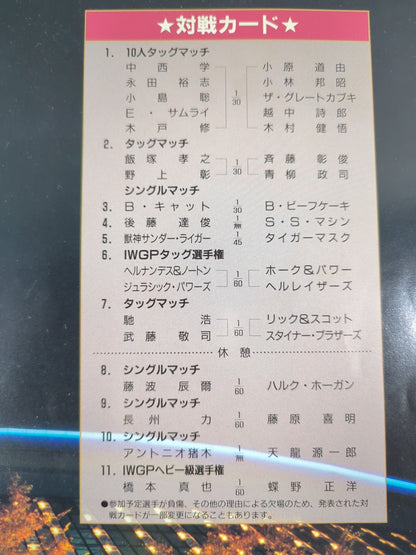 ★対戦カード★
1. 10人タッグマッチ
中西学 小原道由
永田裕志 小林邦昭
小島聡 1/30 ザ・グレートカブキ
E・サムライ 越中詩郎
木戸修 木村健悟
2. タッグマッチ
飯塚孝之 1/30 斉藤彰俊
野上彰 青柳政司
シングルマッチ
3. B・キャット 1/30 B・ビーフケーキ
4. 後藤達俊 1/無 S・S・マシン
5. 獣神サンダー・ライガー 1/45 タイガーマスク
6. IWGPタッグ選手権
ヘルナンデス&ノートン 1/60 ホーク&パワー
ジュラシック・パワーズ ヘルレイザーズ
7. タッグマッチ
馳浩 1/60 リック&スコット
武藤敬司 スタイナー・ブラザーズ
休憩
8. シングルマッチ
藤波辰爾 1/60 ハルク・ホーガン
9. シングルマッチ
長州力 1/60 藤原喜明
10. シングルマッチ
アントニオ猪木 1/無 天龍源一郎
11. IWGPヘビー級選手権
橋本真也 1/60 蝶野正洋
●参加予定選手が負傷、その他の理由による欠場のため、発表された対
戦カードが一部変更になることもあります。